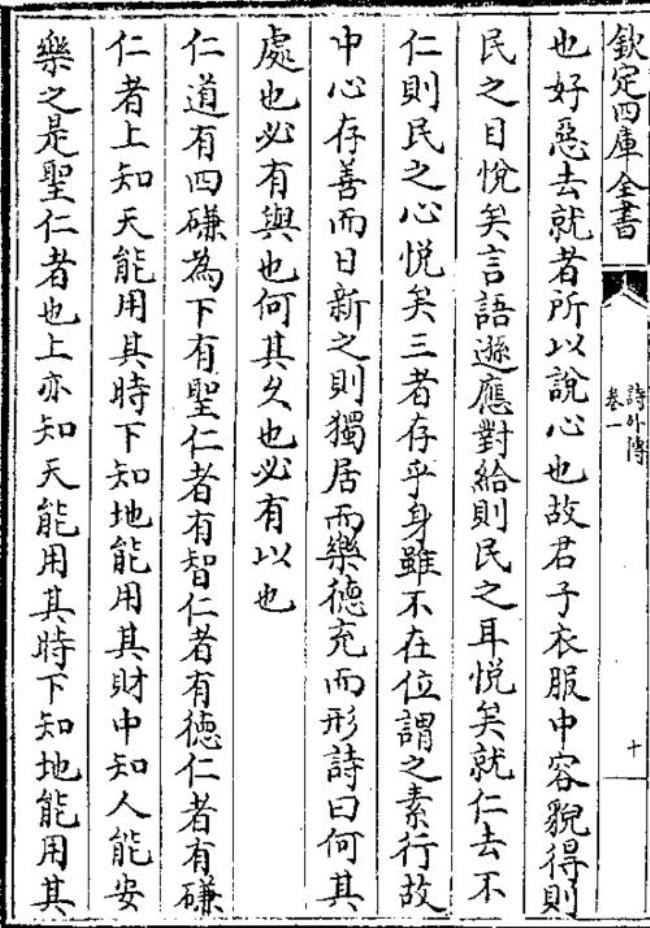 欽定四庫全書
詩外傳
卷一
十
也好惡去就者所以說心也故君子衣服中容貌得則
民之目悅矣言語遜應對給則民之耳悅矣就仁去不
仁則民之心悅矣三者存乎身雖不在位謂之素行故
中心存善而日新之則獨居而樂德充而形詩曰何其
處也必有與也何其久也必有以也
仁道有四磏為下有聖仁者有智仁者有德仁者有磏
仁者上知天能用其時下知地能用其財中知人能安
樂之是聖仁者也上亦知天能用其時下知地能用其